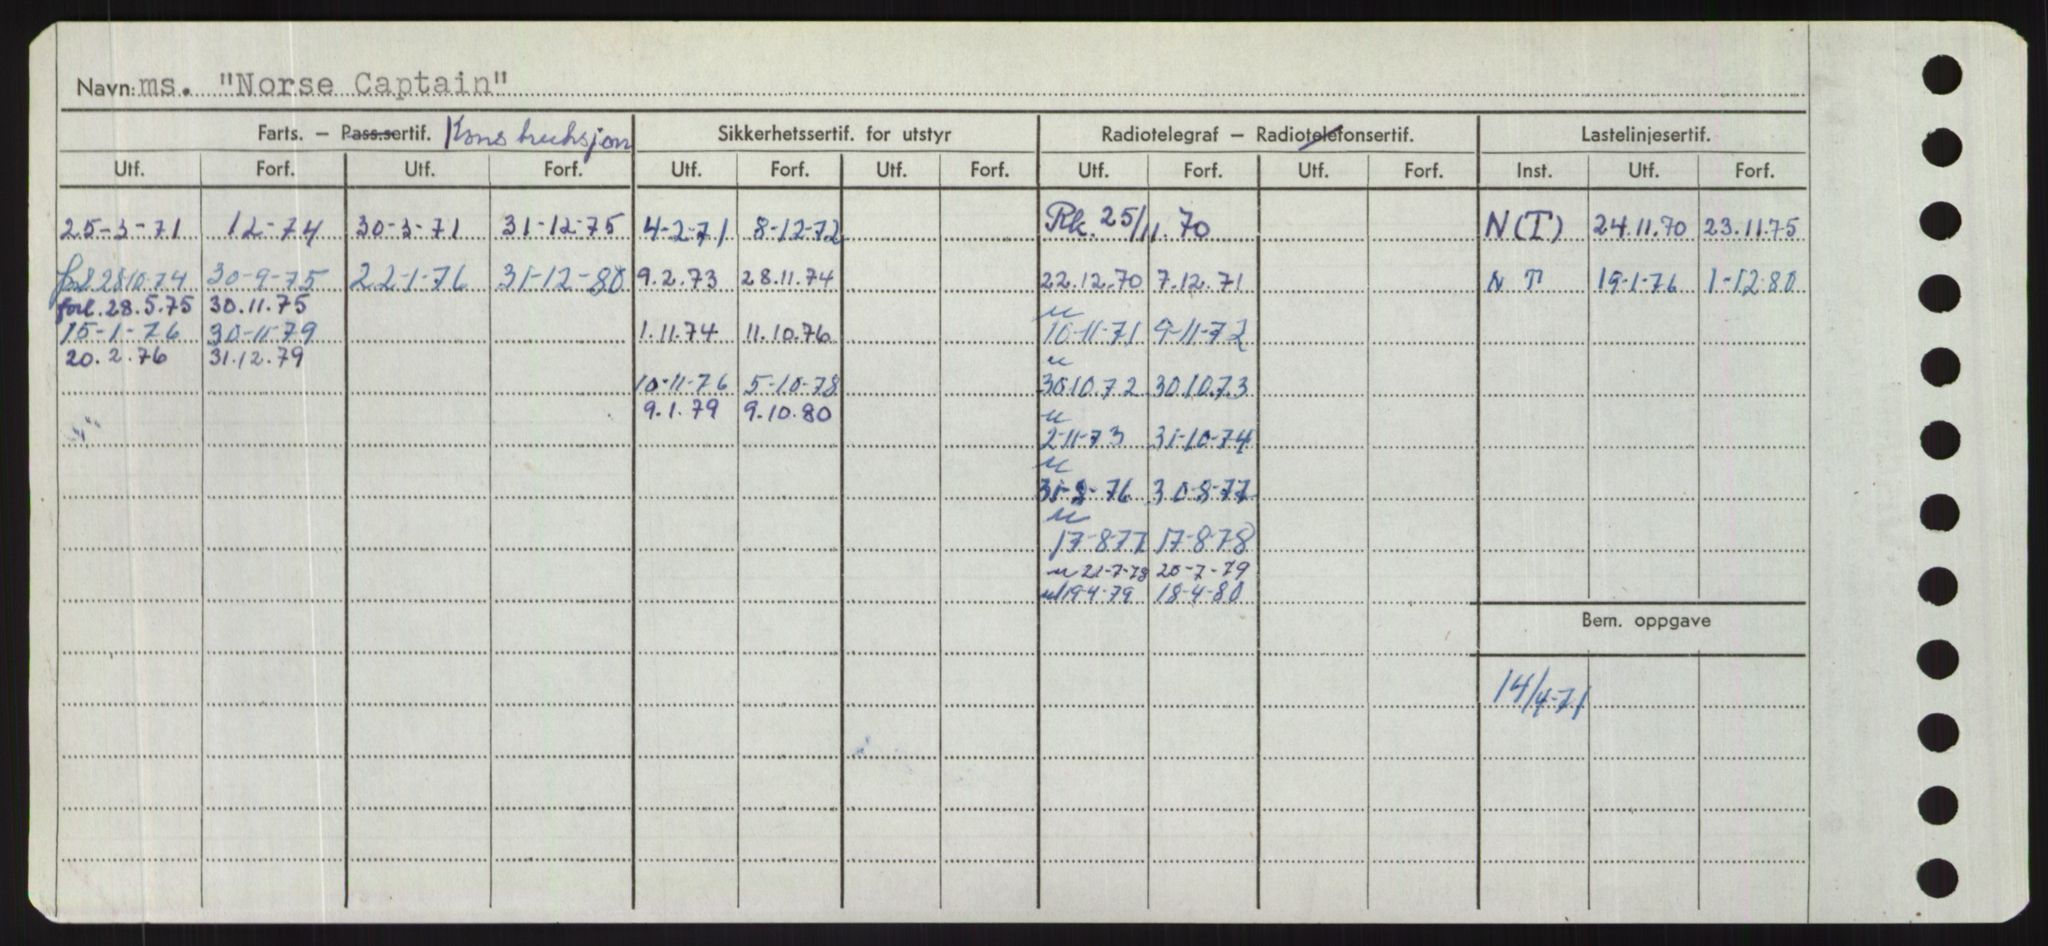 Navn: ms. "Norse Captain"
Farts. – Pass.sertif. Konstruksjon Sikkerhetssertif. for utstyr Radiotelegraf – Radiotelefonsertif. Lastelinjesertif.
Utf. Forf. Utf. Forf. Utf. Forf. Utf. Forf. Utf. Forf. Utf. Forf. Inst. Utf. Forf.
25-3-71 12-74 30-3-71 31-12-75 4-2-71 8-12-72 Rk. 25/11.70 N(T) 24.11.70 23.11.75
28.10.74 30-9-75 22-1-76 31-12-80 9.2.73 28.11.74 22.12.70 7.12.71 N T 19-1-76 1-12-80
forl. 28.5.75 30.11.75
15-1-76 30-11-79 1.11.74 11.10.76 10-11-71 9-11-72
20.2.76 31.12.79
10-11-76 5-10-78 30.10.72 30.10.73
9.1.79 9.10.80
2-11-73 31-10-74
31-8-76 30-8-77
17-8-77 17-8-78
21-7-78 20-7-79
19-4-79 18-4-80
Bem. oppgave
14/4-71